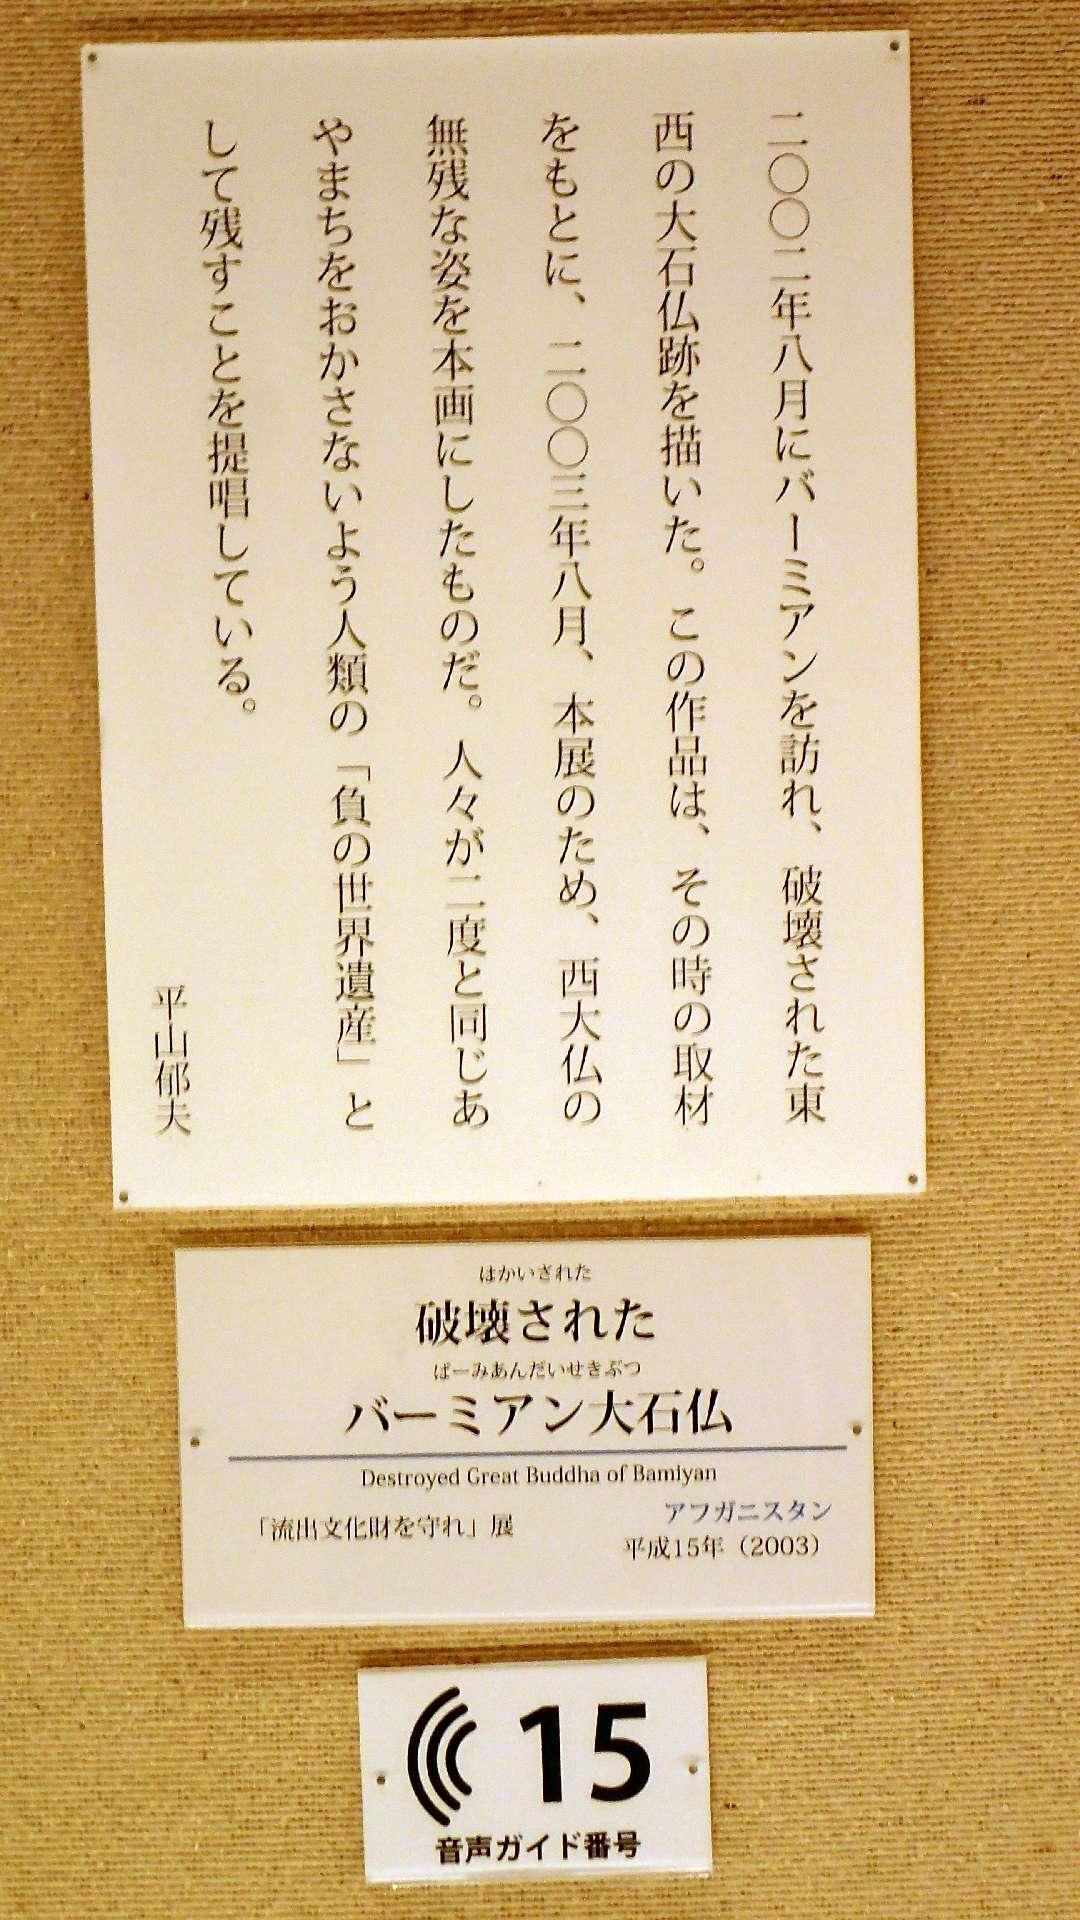 二〇〇二年八月にバーミアンを訪れ、破壊された東
西の大石仏跡を描いた。この作品は、その時の取材
をもとに、二〇〇三年八月、本展のため、西大仏の
無残な姿を本画にしたものだ。人々が二度と同じあ
やまちをおかさないよう人類の「負の世界遺産」と
して残すことを提唱している。
平山郁夫
はかいされた
破壊された
ばーみあんだいせきぶつ
バーミアン大石仏
Destroyed Great Buddha of Bamiyan
アフガニスタン
「流出文化財を守れ」展
平成15年（2003）
15
音声ガイド番号